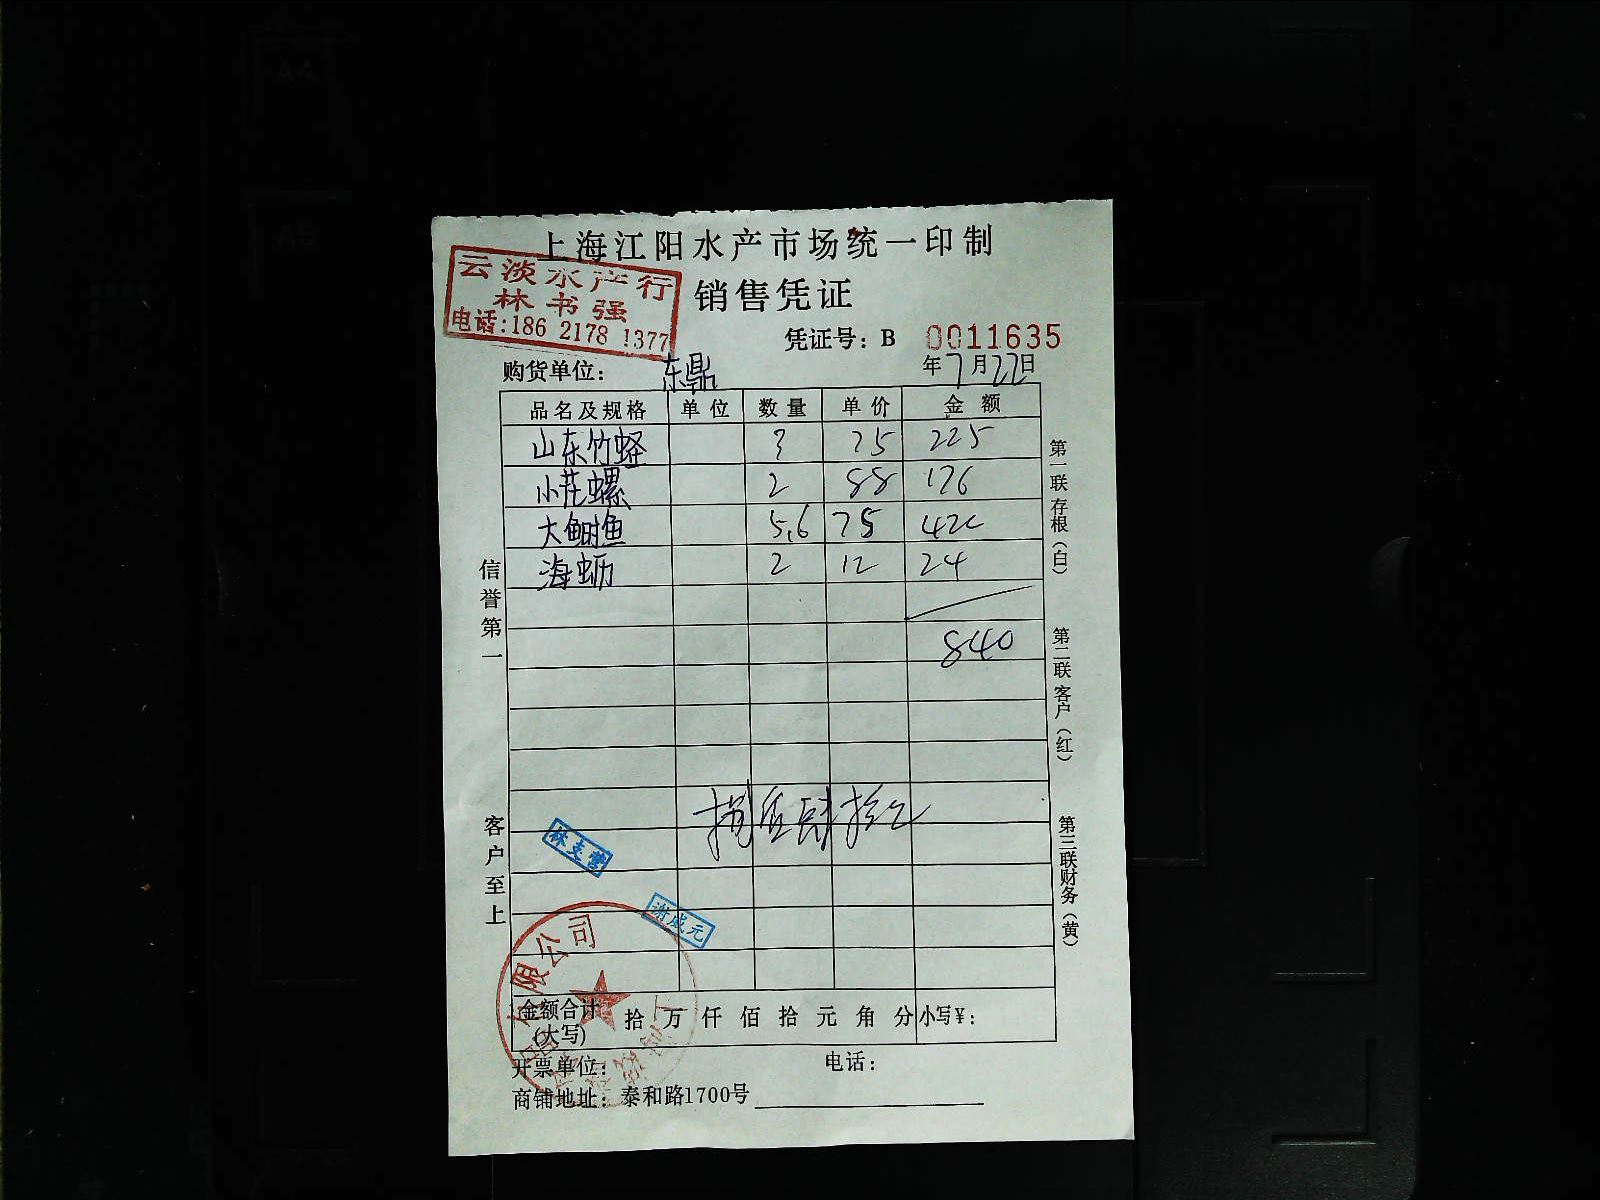 上海江阳水产市场统一印制
云淡水产行
林书强
电话:186 2178 1377
销售凭证
凭证号: B 0011635
购货单位: 东鼎 年7月22日
品名及规格 单位 数量 单价 金额
山东竹蛏 3 75 225
小花螺 2 88 176
大鲥鱼 5.6 75 420
海蛎 2 12 24
840
捌佰肆拾元
林支营
游成元
有限公司
金额合计(大写) 拾 万 仟 佰 拾 元 角 分 小写¥:
开票单位: 电话:
商铺地址: 泰和路1700号
信誉第一
客户至上
第一联存根(白)
第二联客户(红)
第三联财务(黄)